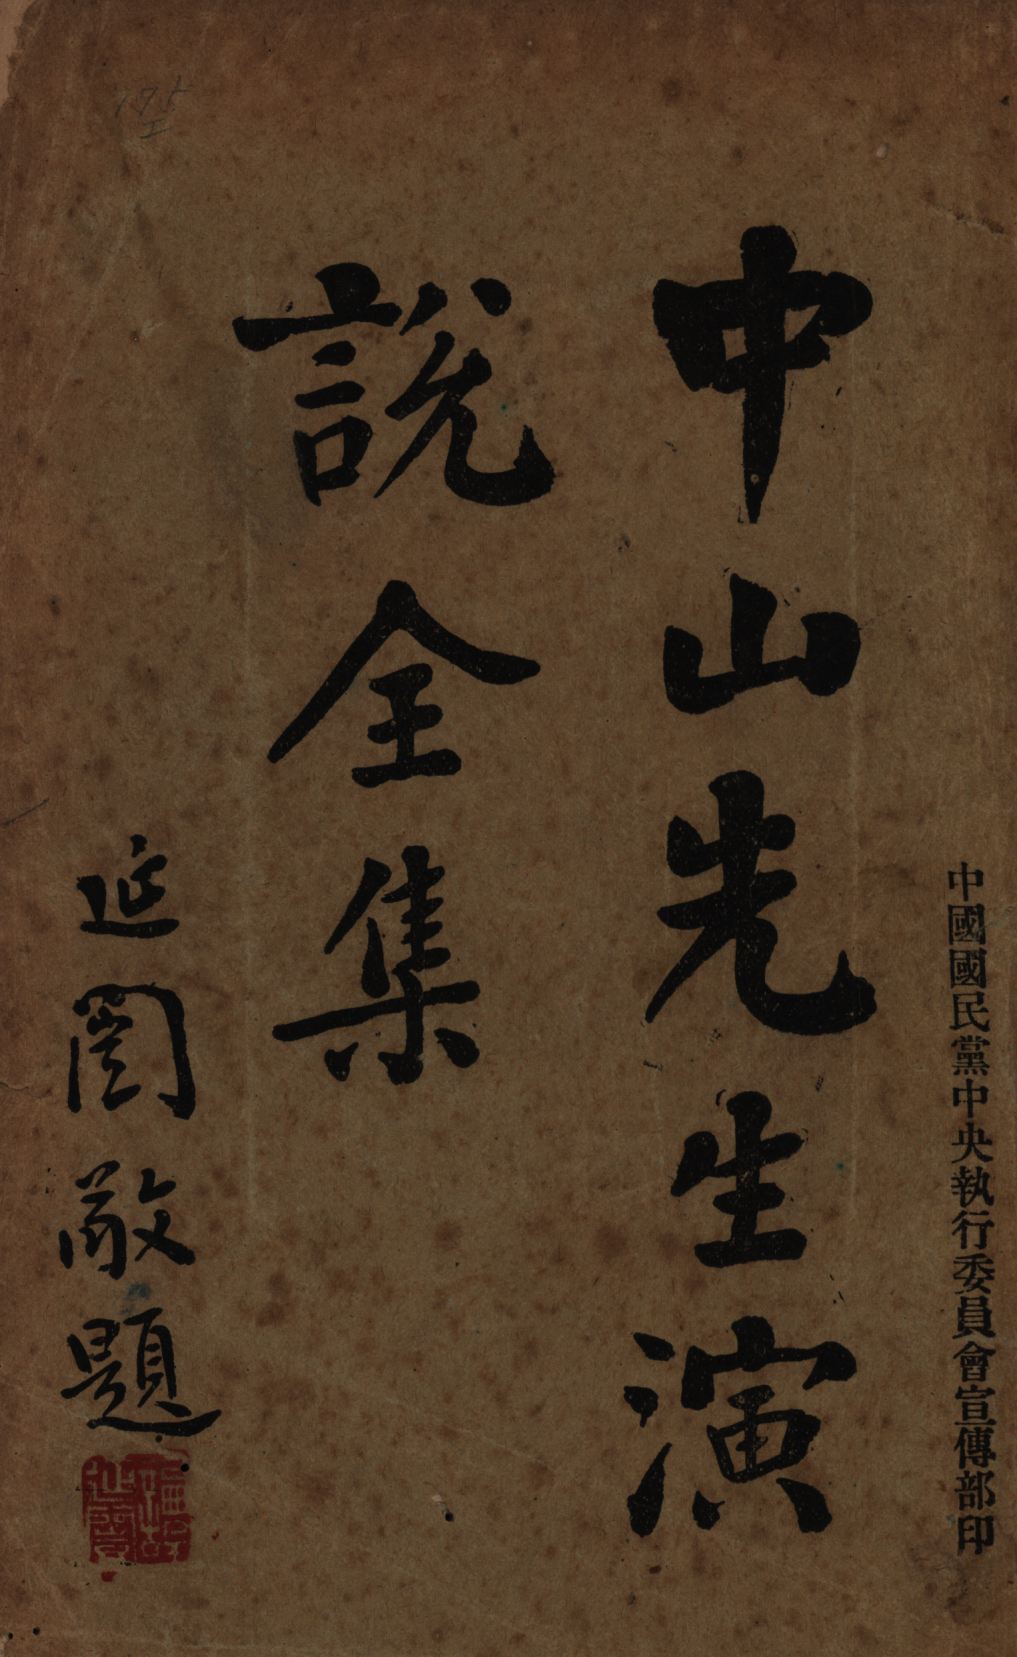 中國國民黨中央執行委員會宣傳部印
中山先生演
說全集
延闓敬題